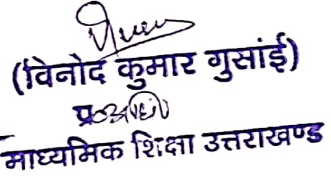 (विनोद कुमार गुसांई)
माध्यमिक शिक्षा उत्तराखण्ड